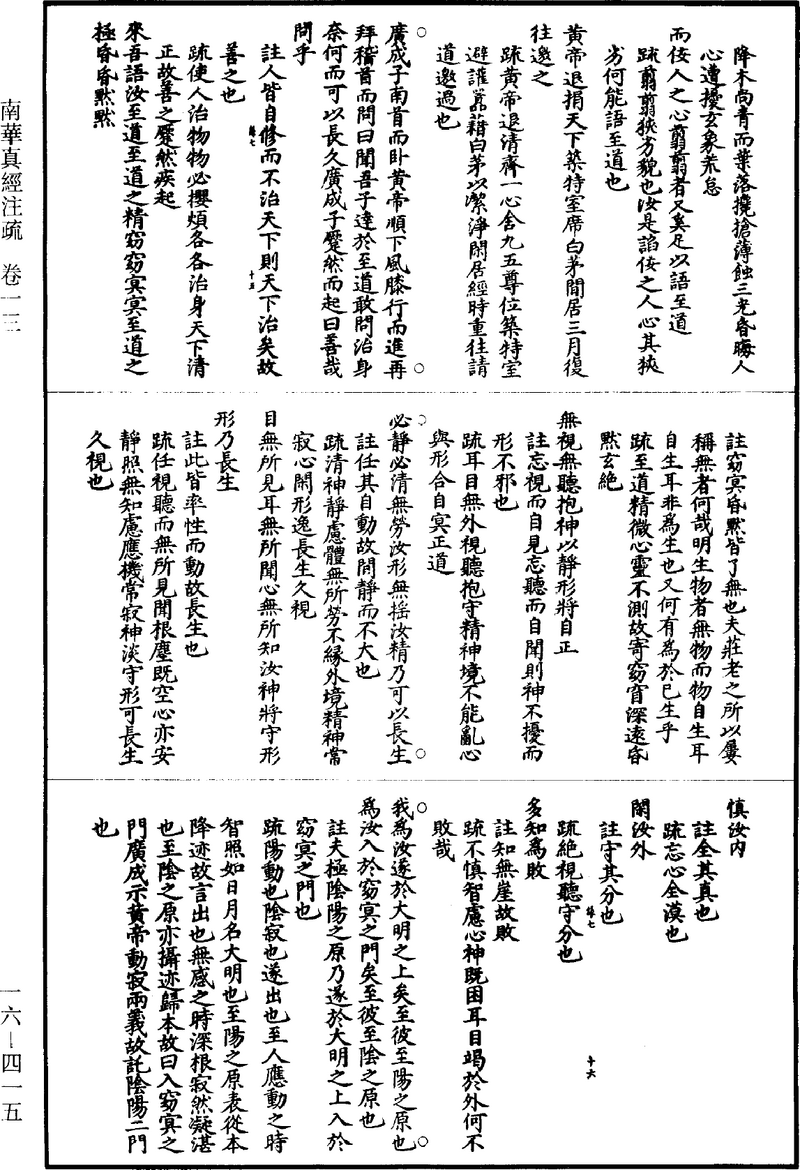 降木尚青而葉落攙搶薄蝕三光昏晦人
心遭擾玄象荒怠
而佞人之心翦翦者又奚足以語至道
疏翦翦狹劣貌也汝是諂佞之人心其狹
劣何能語至道也
黃帝退捐天下築特室席白茅閒居三月復
往邀之
疏黃帝退清齊一心舍九五尊位築特室
避讙囂藉白茅以潔淨閑居經時重往請
道邀過也
廣成子南首而臥黃帝順下風膝行而進再
拜稽首而問曰聞吾子達於至道敢問治身
奈何而可以長久廣成子蹷然而起曰善哉
問乎
註人皆自修而不治天下則天下治矣故
善之也
疏使人治物物必攖煩各各治身天下清
正故善之蹷然疾起
來吾語汝至道至道之精窈窈冥冥至道之
極昏昏默默
註窈冥昏默皆了無也夫莊老之所以屢
稱無者何哉明生物者無物而物自生耳
自生耳非為生也又何有為於已生乎
疏至道精微心靈不測故寄窈窅深遠昏
默玄絕
無視無聽抱神以靜形將自正
註忘視而自見忘聽而自聞則神不擾而
形不邪也
疏耳目無外視聽抱守精神境不能亂心
與形合自冥正道
必靜必清無勞汝形無搖汝精乃可以長生
註任其自動故閒靜而不夭也
疏清神靜慮體無所勞不緣外境精神常
寂心閑形逸長生久視
目無所見耳無所聞心無所知汝神將守形
形乃長生
註此皆率性而動故長生也
疏任視聽而無所見聞根塵既空心亦安
靜照無知慮應機常寂神淡守形可長生
久視也
慎汝內
註全其真也
疏忘心全漠也
閑汝外
註守其分也
疏絕視聽守分也
多知為敗
註知無崖故敗
疏不慎智慮心神既困耳目竭於外何不
敗哉
我為汝遂於大明之上矣至彼至陽之原也
為汝入於窈冥之門矣至彼至陰之原也
註夫極陰陽之原乃遂於大明之上入於
窈冥之門也
疏陽動也陰寂也遂出也至人應動之時
智照如日月名大明也至陽之原表從本
降迹故言出也無感之時深根寂然凝湛
也至陰之原亦攝迹歸本故曰入窈冥之
門廣成示黃帝動寂兩義故託陰陽二門
也
南華真經注疏 卷一三
一六—四一五